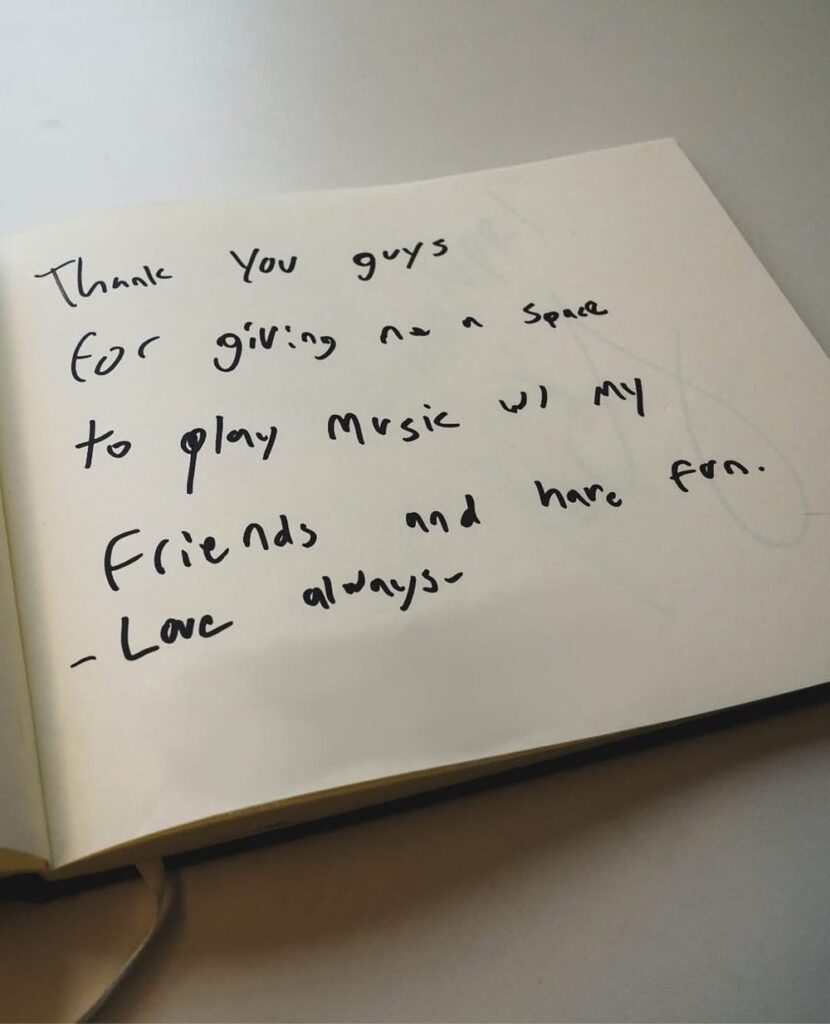 Thank you guys
for giving me a space
to play music w/ my
Friends and have fun.
- Love always-